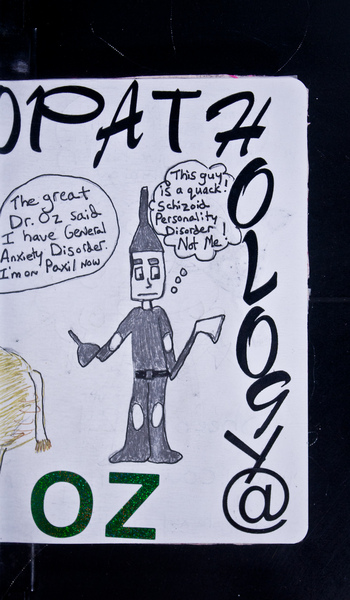 OPATHOLOGY@
The great
Dr. Oz said
I have General
Anxiety Disorder.
I'm on Paxil Now
This guy
is a quack!
Schizoid
Personality
Disorder!
Not Me!
OZ